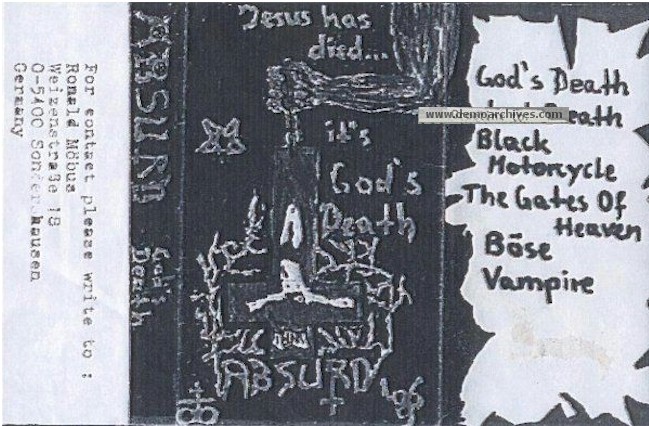 For contact please write to :
Ronald Möbus
Weizenstraße 18
O-5400 Sondershausen
Germany
ABSURD
God's
Death
Jesus has
died...
it's
God's
Death
ABSURD
God's Death
Death
www.demoarchives.com
Black
Motorcycle
The Gates Of
Heaven
Böse
Vampire